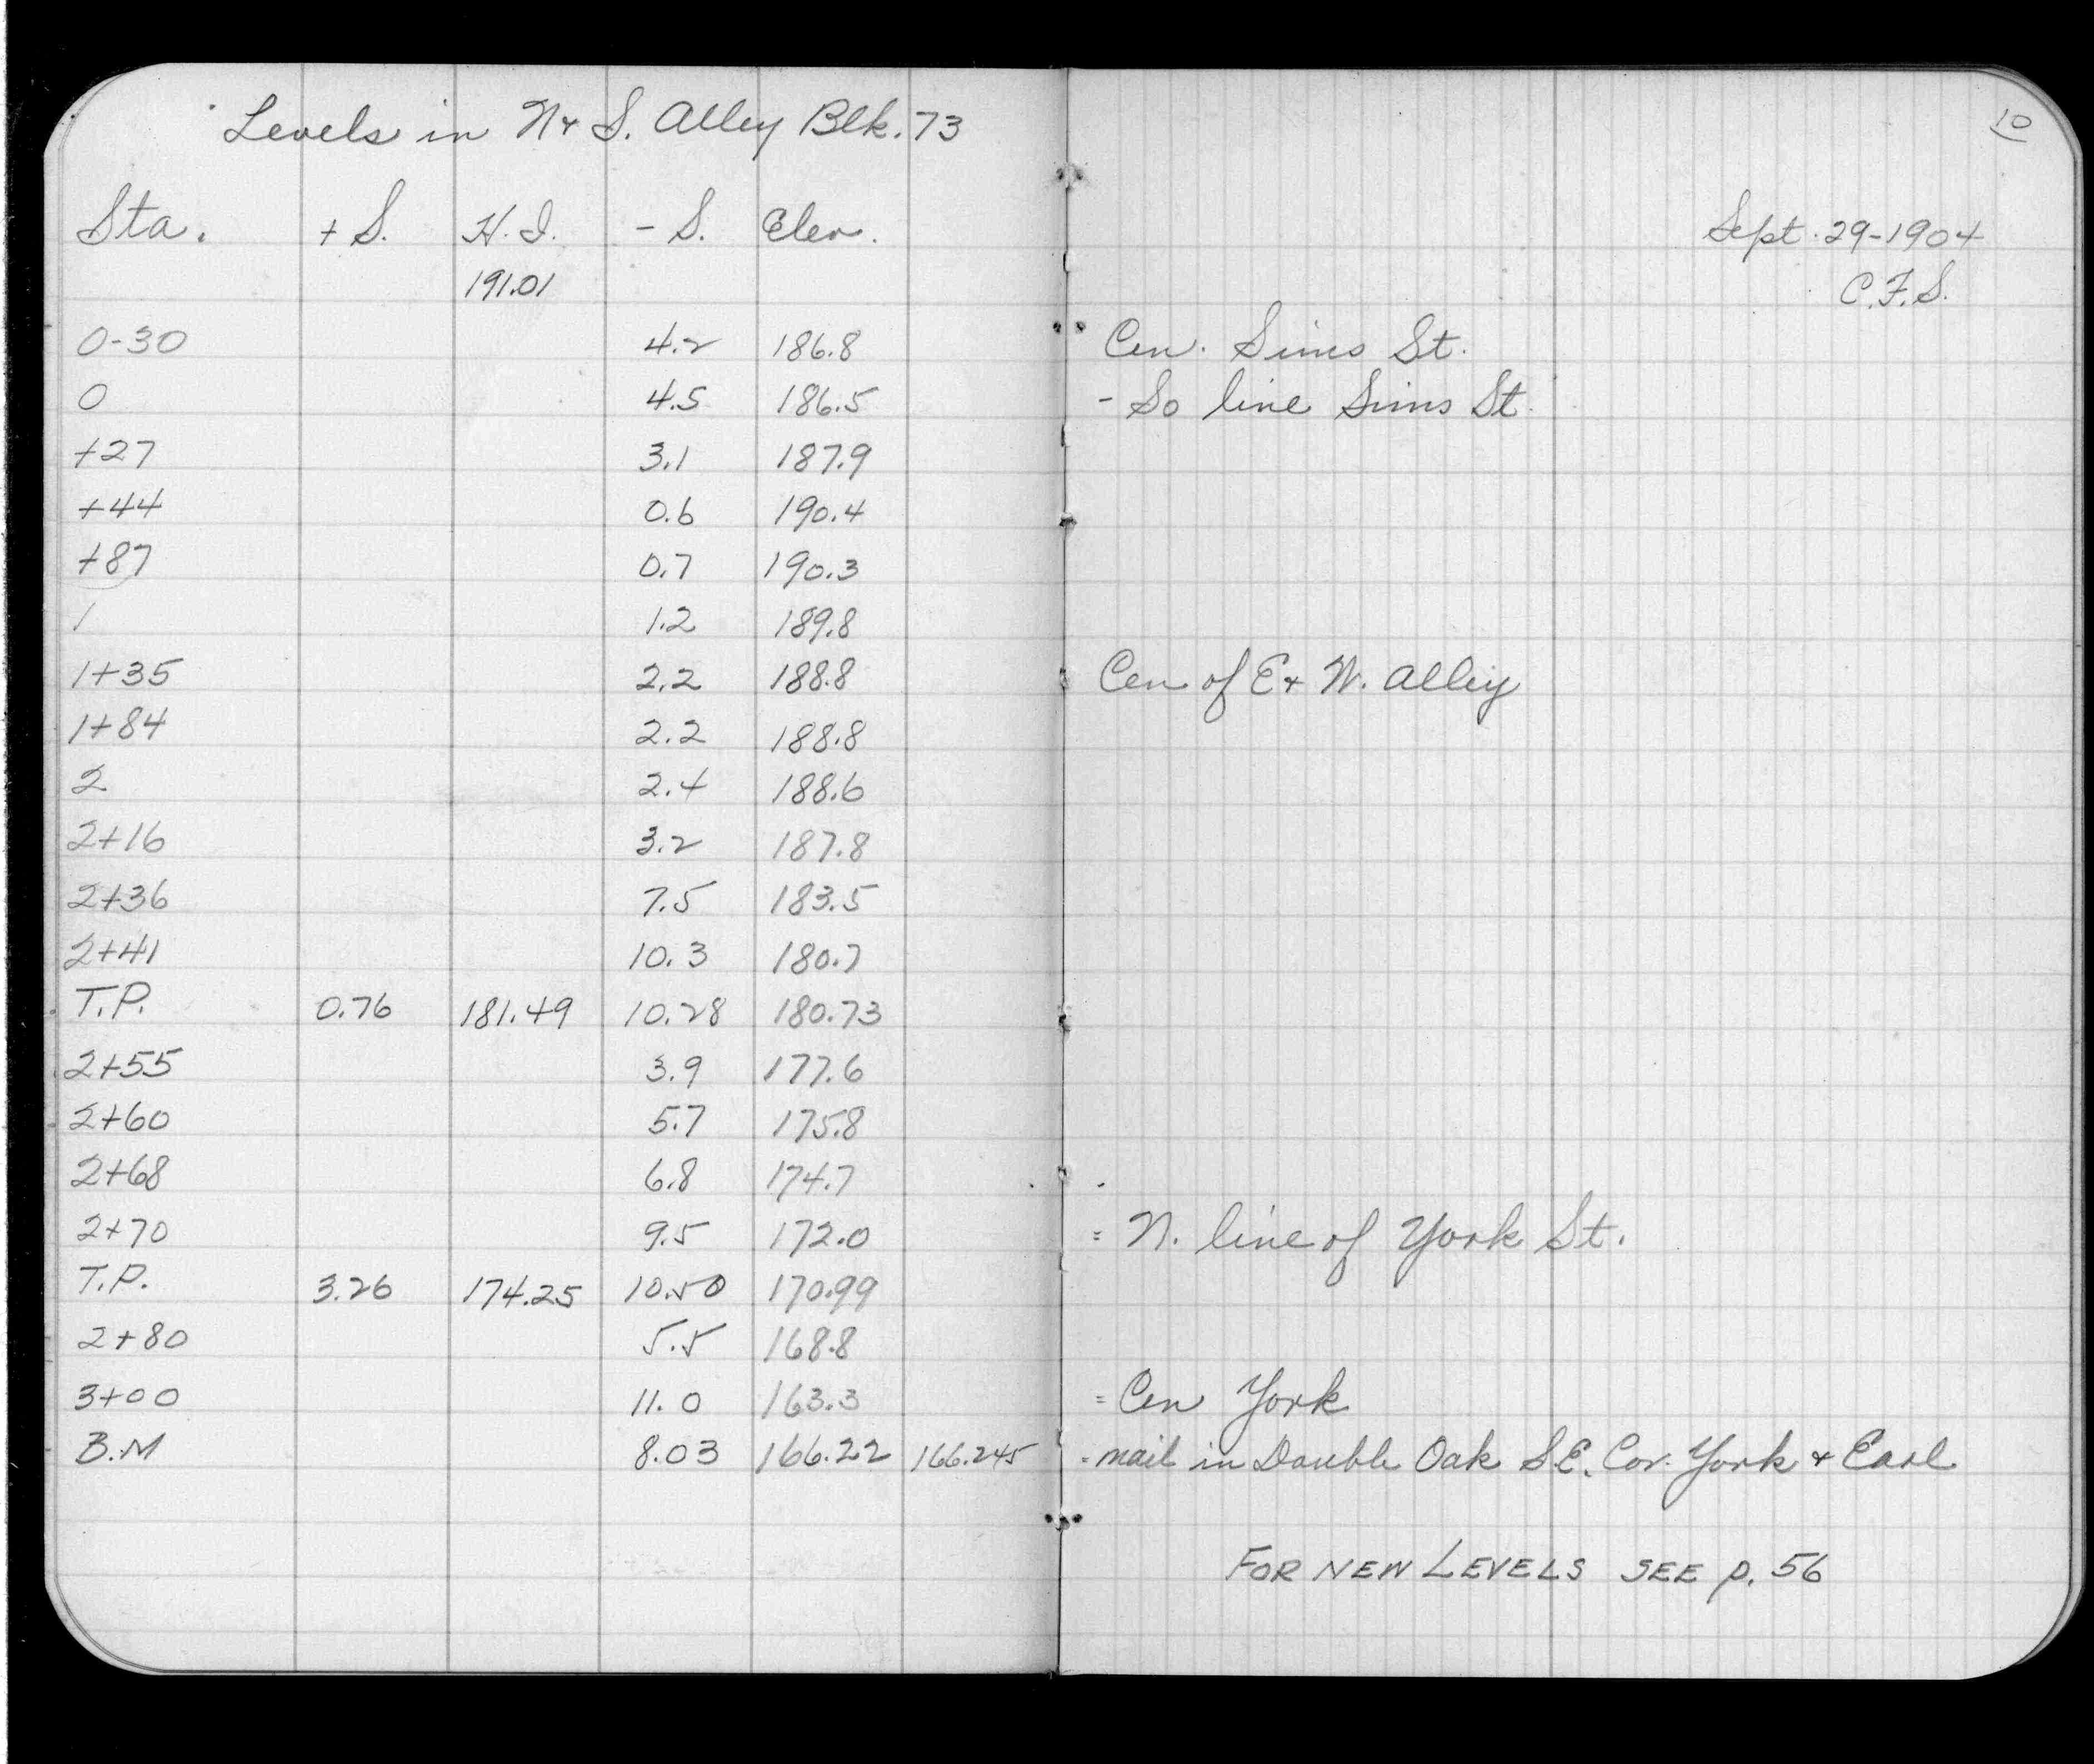 Levels in N & S. Alley Blk. 73
Sta. + S. H. I. - S. Elev.
191.01
0-30 4.2 186.8
0 4.5 186.5
+27 3.1 187.9
+44 0.6 190.4
+87 0.7 190.3
1 1.2 189.8
1+35 2.2 188.8
1+84 2.2 188.8
2 2.4 188.6
2+16 3.2 187.8
2+36 7.5 183.5
2+41 10.3 180.7
T.P. 0.76 181.49 10.28 180.73
2+55 3.9 177.6
2+60 5.7 175.8
2+68 6.8 174.7
2+70 9.5 172.0
T.P. 3.26 174.25 10.50 170.99
2+80 5.5 168.8
3+00 11.0 163.3
B.M 8.03 166.22 166.245
10
Sept. 29-1904
C.F.S.
Cen. Sims St.
- So line Sims St.
Cen of E & W. Alley
= N. line of York St.
= Cen York
- nail in Double Oak S.E. Cor. York & Earl
FOR NEW LEVELS SEE p. 56